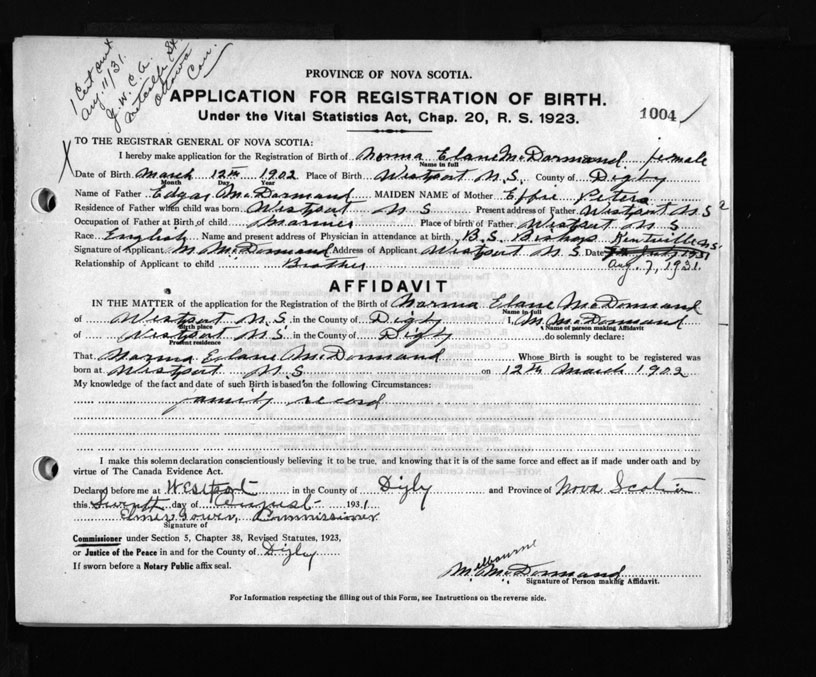 1 Cert out
Aug. 11/31.
Y. W. C. A.
Metcalfe St.
Ottawa
Can.
PROVINCE OF NOVA SCOTIA.
APPLICATION FOR REGISTRATION OF BIRTH.
Under the Vital Statistics Act, Chap. 20, R. S. 1923.
1004
TO THE REGISTRAR GENERAL OF NOVA SCOTIA:
I hereby make application for the Registration of Birth of Norma Elane McDormand female
Name in full
Date of Birth March 12th 1902 Place of Birth Westport N.S. County of Digby
Month Day Year
Name of Father Edgar McDormand MAIDEN NAME of Mother Effie Peters
Residence of Father when child was born Westport N S Present address of Father Westport N S
Occupation of Father at Birth of child Mariner Place of birth of Father Westport N. S
Race English Name and present address of Physician in attendance at birth B.S. Bishop Kentville N.S.
Signature of Applicant M. McDormand Address of Applicant Westport N S Date 1931
Aug. 7, 1931.
Relationship of Applicant to child Brother
AFFIDAVIT
IN THE MATTER of the application for the Registration of the Birth of Norma Elane McDormand
Name in full
of Westport N.S. in the County of Digby I, M. McDormand
Birth place Name of person making Affidavit
of Westport N.S in the County of Digby do solemnly declare:
Present residence
That Norma Elane McDormand Whose Birth is sought to be registered was
born at Westport N.S on 12th March 1902
My knowledge of the fact and date of such Birth is based on the following Circumstances:
family record
I make this solemn declaration conscientiously believing it to be true, and knowing that it is of the same force and effect as if made under oath and by
virtue of The Canada Evidence Act.
Declared before me at Westport in the County of Digby and Province of Nova Scotia
this day of August 1931
Commissioner
Signature of
Commissioner under Section 5, Chapter 38, Revised Statutes, 1923,
or Justice of the Peace in and for the County of Digby
If sworn before a Notary Public affix seal.
elbourne
M. McDormand
Signature of Person making Affidavit.
For Information respecting the filling out of this Form, see Instructions on the reverse side.